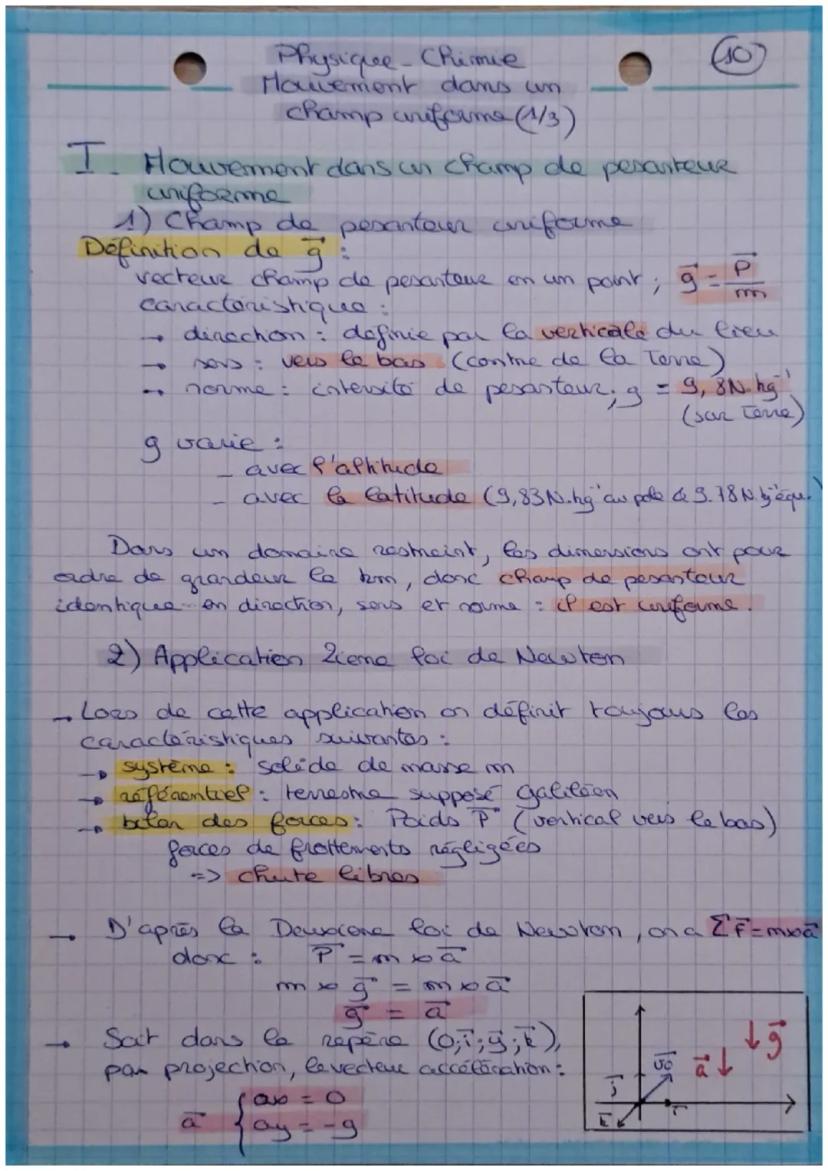 Physique - Chimie
10
Mouvement dans un
champ uniforme (1/3)
I. Mouvement dans un champ de pesanteur
uniforme
1) Champ de pesanteur uniforme
Définition de g⃗ :
vecteur champ de pesanteur en un point ; g⃗ = P⃗/m
caractéristique :
→ direction : définie par la verticale du lieu
→ sens : vers le bas (centre de la Terre)
→ norme : intensité de pesanteur ; g = 9,8N.kg⁻¹
(sur Terre)
g varie :
- avec l'altitude
- avec la latitude (9,83N.kg⁻¹ au pole & 9.78N.kg⁻¹ équ.)
Dans un domaine restreint, les dimensions ont pour
ordre de grandeur le km, donc champ de pesanteur
identique en direction, sens et norme : il est uniforme.
2) Application 2ième loi de Newton
→ Lors de cette application on définit toujours les
caractéristiques suivantes :
→ système : solide de masse m
→ référentiel : terrestre supposé galiléen
→ bilan des forces : Poids P⃗ (vertical vers le bas)
forces de frottements négligées
=> chute libres
→ D'après la Deuxième loi de Newton, on a ΣF⃗ = m×a⃗
donc : P⃗ = m × a⃗
m × g⃗ = m × a⃗
g⃗ = a⃗
→ Soit dans le repère (0;i⃗;j⃗;k⃗),
par projection, le vecteur accélération :
a⃗ { ax = 0
ay = -g
j⃗ v0⃗ a⃗ ↓ ↓ g⃗
k⃗ i⃗